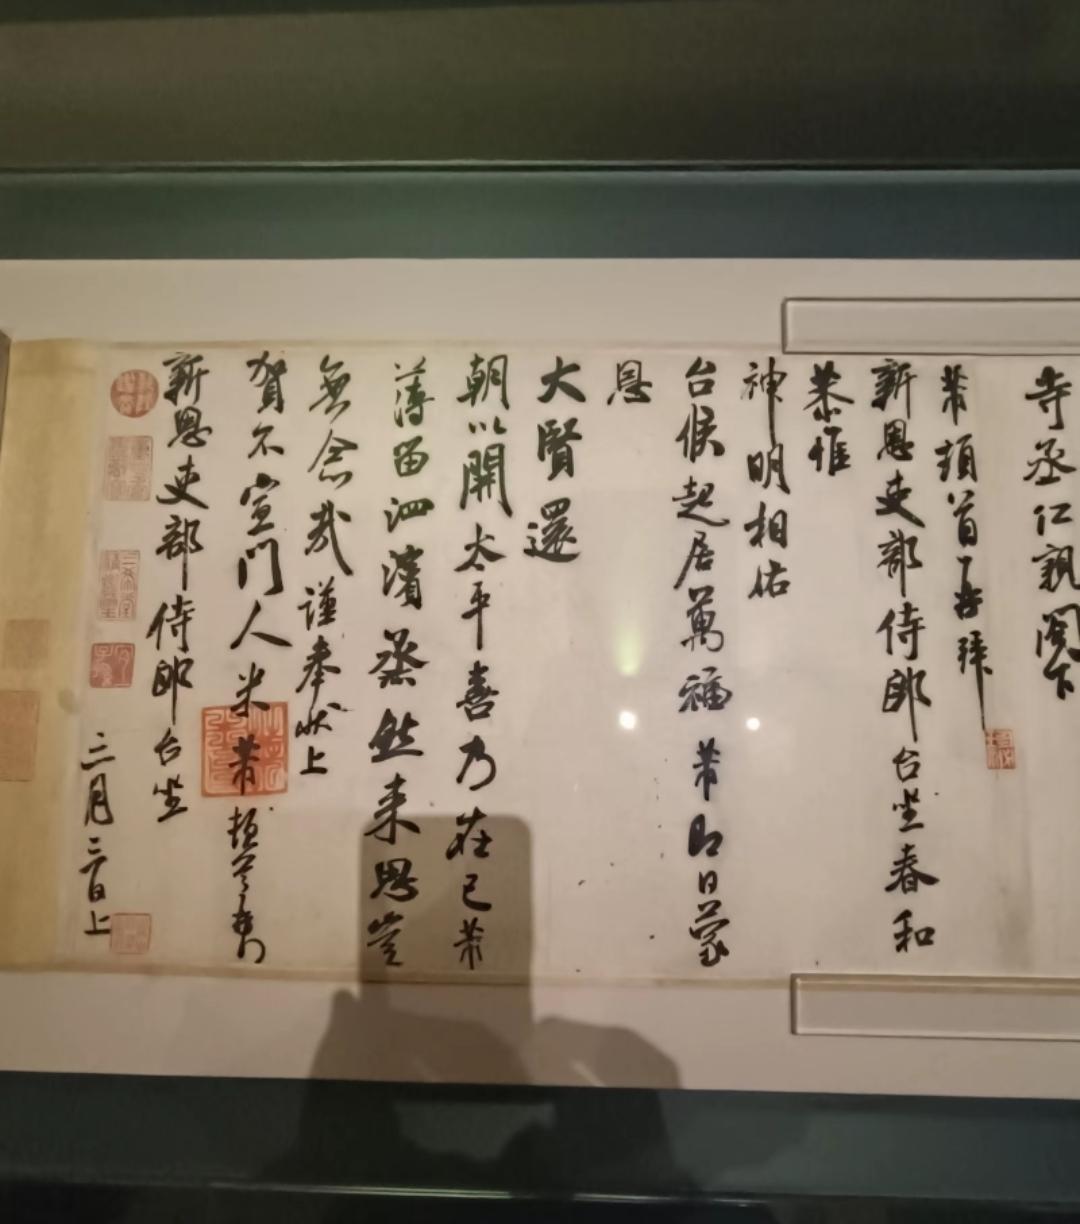 寺丞仁親閣下
芾頓首再拜
新恩吏部侍郎台坐春和
恭惟
神明相佑
台候起居萬福芾即日蒙
恩
大賢還
朝以開太平喜乃在己芾
薄留泗濱烝然来思豈
無念哉謹奉狀上
賀不宣門人米芾頓首
新恩吏部侍郎台坐
三月三日上